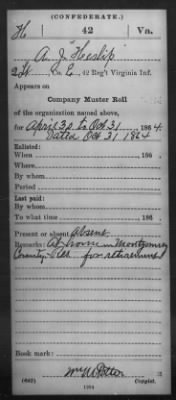 (CONFEDERATE.)
H 42 Va.
A. J. Heslip
Co. E, 42 Reg't Virginia Inf.
Appears on
Company Muster Roll
of the organization named above,
for April 30 to Oct 31, 1864.
Dated Oct 31 1864
Enlisted:
When , 186 .
Where
By whom
Period
Last paid:
By whom
To what time , 186 .
Present or absent Absent
Remarks: At home in Montgomery
County, for retirement
Book mark:
(642) Copyist.